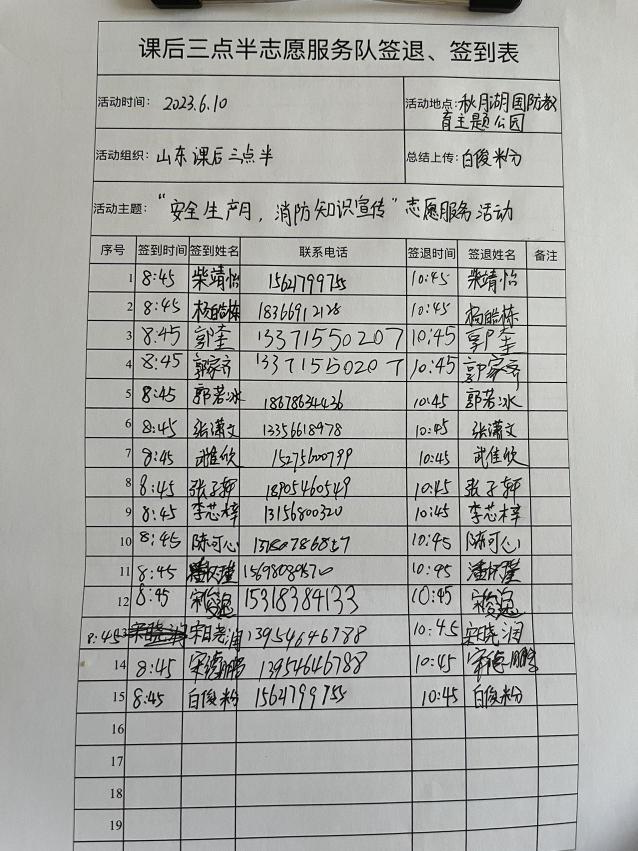 课后三点半志愿服务队签退、签到表
活动时间: 2023.6.10 活动地点:秋月湖国防教
育主题公园
活动组织: 山东课后三点半 总结上传:白俊粉
活动主题: “安全生产月,消防知识宣传”志愿服务活动
序号 签到时间 签到姓名 联系电话 签退时间 签退姓名 备注
1 8:45 柴靖怡 1562799755 10:45 柴靖怡
2 8:45 杨皓栋 18366912128 10:45 杨皓栋
3 8:45 郭奎 13371550207 10:45 郭奎
4 8:45 郭家齐 13371550207 10:45 郭家齐
5 8:45 郭若冰 18678634436 10:45 郭若冰
6 8:45 张潇文 13356618978 10:45 张潇文
7 8:45 武佳欣 15275600799 10:45 武佳欣
8 8:45 张子轩 18905460549 10:45 张子轩
9 8:45 李芯梓 13156800320 10:45 李芯梓
10 8:45 陈可心 10:45 陈可心
11 8:45 10:45
12 8:45 15318384133 10:45
8:45 13 宋晓润 13954646788 10:45 宋晓润
14 8:45 宋德鹏 13954646788 10:45 宋德鹏
15 8:45 白俊粉 1562799755 10:45 白俊粉
16
17
18
19